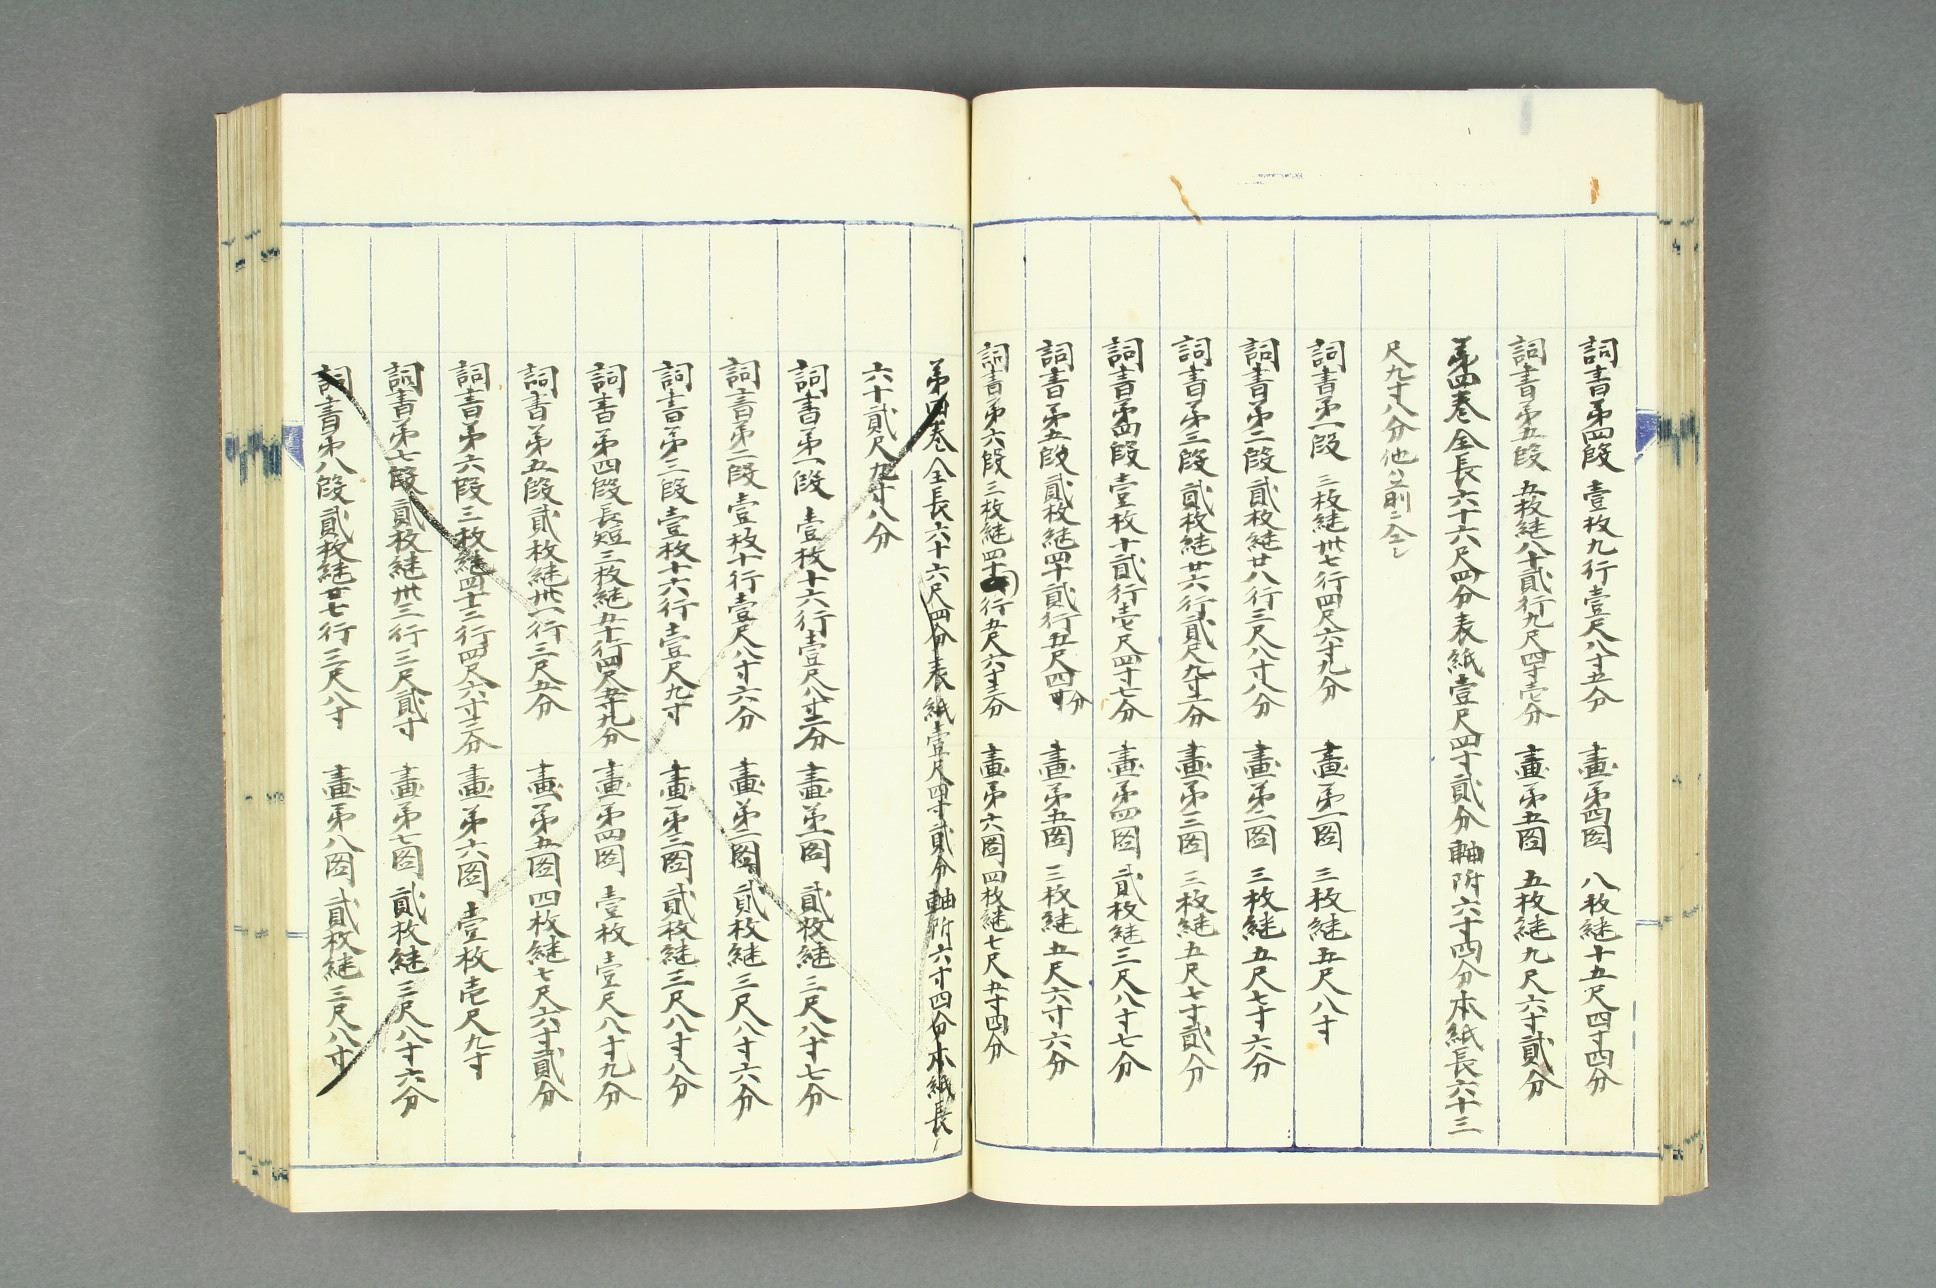 詞書第四段 壹枚九行壹尺八寸五分 畫第四図 八枚継十五尺四寸四分
詞書第五段 五枚継八十貳行九尺四寸壱分 畫第五図 五枚継九尺六寸貳分
第四巻全長六十六尺四分表紙壹尺四寸貳分軸附六寸四分本紙長六十三
尺九寸八分
詞書第一段 三枚継卅七行四尺六寸九分 畫第一図 三枚継五尺八寸
詞書第二段 貳枚継廿八行三尺八寸八分 畫第二図 三枚継五尺七寸六分
詞書第三段 貳枚継廿六行貳尺九寸一分 畫第三図 三枚継五尺七寸貳分
詞書第四段 壹枚十貳行壱尺四寸七分 畫第四図 貳枚継三尺八寸七分
詞書第五段 貳枚継四十貳行五尺四寸分 畫第五図 三枚継五尺六寸六分
詞書第六段 三枚継四十行五尺六寸三分 畫第六図 四枚継七尺五寸四分
第四巻全長六十六尺四分表紙壹尺四寸貳分軸附六寸四分本紙長
六十貳尺九寸八分
詞書第一段 壹枚十六行壹尺八寸二分 畫第一図 貳枚継三尺八寸七分
詞書第二段 壹枚十行壹尺八寸六分 畫第二図 貳枚継三尺八寸六分
詞書第三段 壹枚十六行壹尺九寸 畫第三図 貳枚継三尺八寸八分
詞書第四段 長短三枚継五十行四尺五寸九分 畫第四図 壹枚壹尺八寸九分
詞書第五段 貳枚継卅一行三尺五分 畫第五図 四枚継七尺六寸貳分
詞書第六段 三枚継四十二行四尺六寸三分 畫第六図 壹枚壱尺九寸
詞書第七段 貳枚継卅三行三尺貳寸 畫第七図 貳枚継三尺八寸六分
詞書第八段 貳枚継廿七行三尺八寸 畫第八図 貳枚継三尺八寸